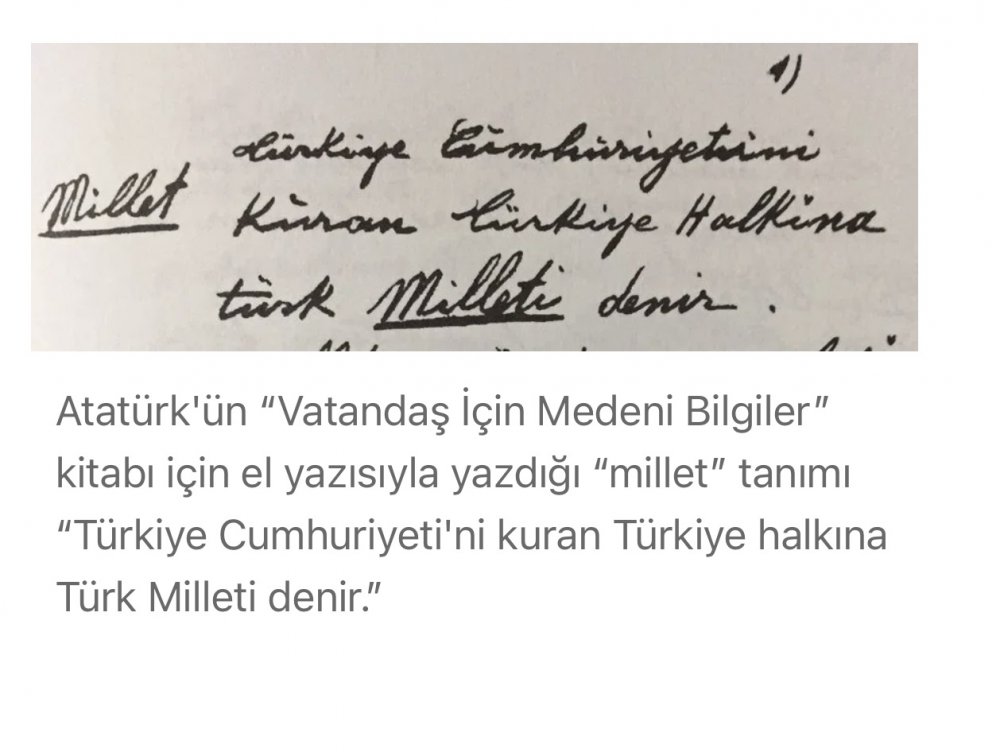 1)
türkiye Cümhüriyetini
Millet Küran türkiye Halkina
türk Milleti denir.
Atatürk'ün “Vatandaş İçin Medeni Bilgiler”
kitabı için el yazısıyla yazdığı “millet” tanımı
“Türkiye Cumhuriyeti'ni kuran Türkiye halkına
Türk Milleti denir.”